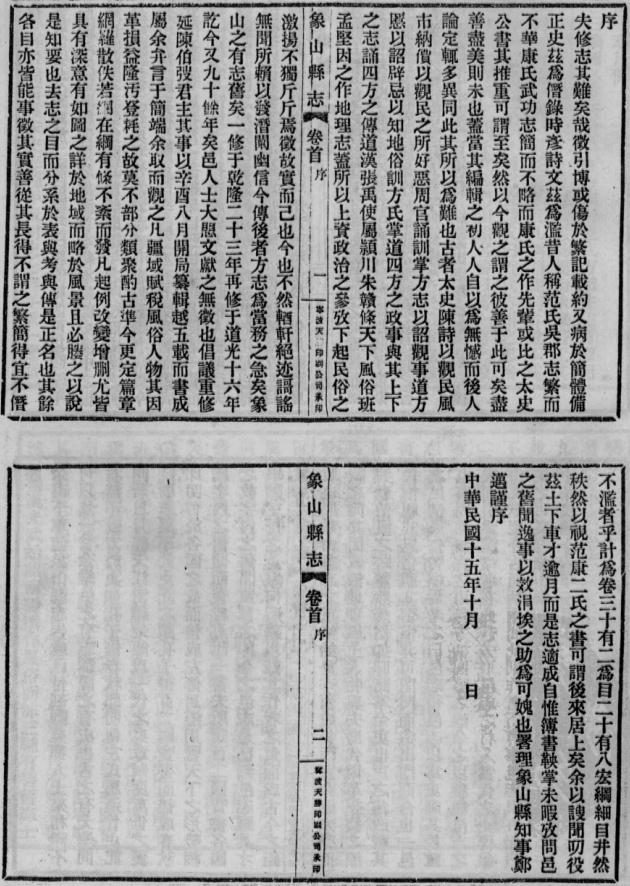 序
夫修志其難矣哉徵引博或傷於繁記載約又病於簡體備
正史茲爲僭錄時彥詩文茲爲濫昔人稱范氏吳郡志繁而
不華康氏武功志簡而不略而康氏之作先輩或比之太史
公書其推重可謂至矣然以今觀之謂之彼善于此可矣盡
善盡美則未也蓋當其編輯之初人人自以爲無憾而後人
論定輒多異同此其所以爲難也古者太史陳詩以觀民風
市納價以觀民之所好惡周官誦訓掌方志以詔觀事道方
慝以詔辟忌以知地俗訓方氏掌道四方之政事與其上下
之志誦四方之傳道漢張禹使屬潁川朱贛條天下風俗班
孟堅因之作地理志蓋所以上資政治之參攷下起民俗之
象山縣志 卷首 序 一 寧波天勝印刷公司承印
激揚不獨斤斤焉徵故實而已也今也不然輶軒絕迹謌謠
無聞所賴以發潛闡幽信今傳後者方志爲當務之急矣象
山之有志舊矣一修于乾隆二十三年再修于道光十六年
訖今又九十餘年矣邑人士大懼文獻之無徵也倡議重修
延陳伯弢君主其事以辛酉八月開局纂輯越五載而書成
屬余弁言于簡端余取而觀之凡疆域賦稅風俗人物其因
革損益隆汚登耗之故莫不部分類聚酌古準今更定篇章
網羅散佚若網在綱有條不紊而發凡起例改變增刪尤皆
具有深意有如圖之詳於地域而略於風景且必勝之以說
是知要也去志之目而分系於表與考與傳是正名也其餘
各目亦皆能事徵其實善從其長得不謂之繁簡得宜不僭
不濫者乎計爲卷三十有二爲目二十有八宏綱細目井然
秩然以視范康二氏之書可謂後來居上矣余以謏聞叨役
茲土下車才逾月而是志適成自惟簿書鞅掌未暇攷問邑
之舊聞逸事以效涓埃之助爲可媿也署理象山縣知事鄭
邁謹序
中華民國十五年十月 日
象山縣志 卷首 序 二 寧波天勝印刷公司承印